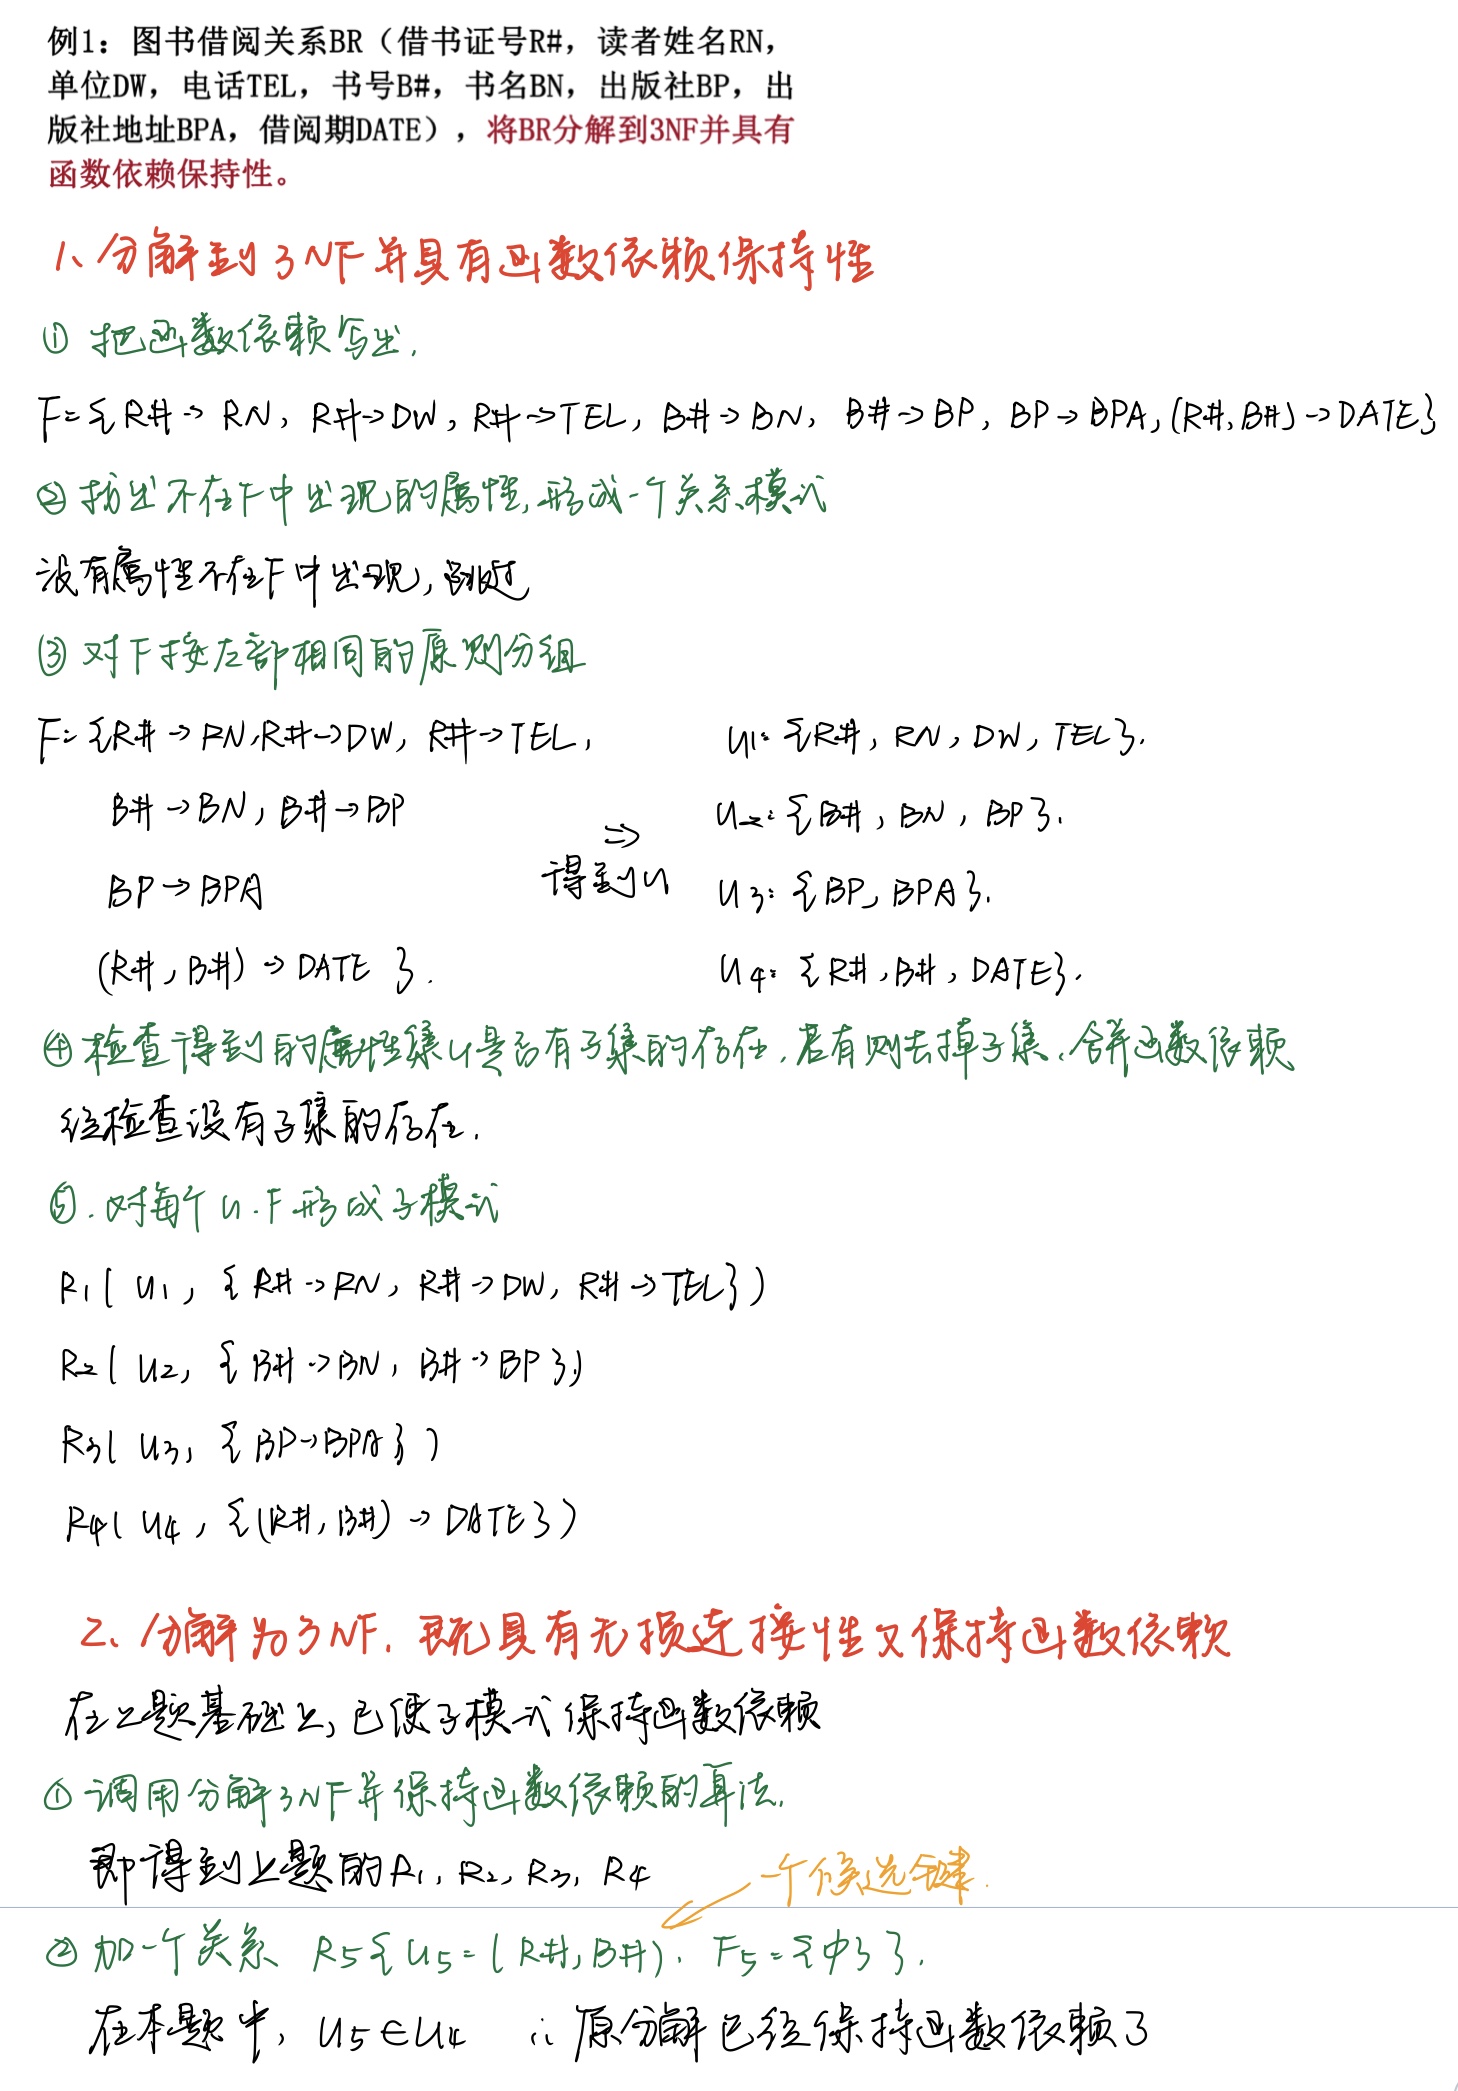 例1：图书借阅关系BR（借书证号R#，读者姓名RN，
单位DW，电话TEL，书号B#，书名BN，出版社BP，出
版社地址BPA，借阅期DATE），将BR分解到3NF并具有
函数依赖保持性。
1、分解到3NF并具有函数依赖保持性
① 把函数依赖写出.
F={R#→RN, R#→DW, R#→TEL, B#→BN, B#→BP, BP→BPA, (R#,B#)→DATE}
② 找出不在F中出现的属性,形成一个关系模式
没有属性不在F中出现,跳过
③ 对F按左部相同的原则分组
F={R#→RN,R#→DW, R#→TEL, U1:{R#, RN, DW, TEL}.
B#→BN, B#→BP U2:{B#, BN, BP}.
⇒
BP→BPA 得到U U3:{BP, BPA}.
(R#,B#)→DATE }. U4:{R#,B#,DATE}.
④ 检查得到的属性集U是否有子集的存在,若有则去掉子集,合并函数依赖
经检查没有子集的存在.
⑤.对每个U.F形成子模式
R1(U1, {R#→RN, R#→DW, R#→TEL})
R2(U2, {B#→BN, B#→BP})
R3(U3, {BP→BPA})
R4(U4, {(R#,B#)→DATE})
2、分解为3NF,既具有无损连接性又保持函数依赖
在上题基础上,已使子模式保持函数依赖
① 调用分解3NF并保持函数依赖的算法.
即得到上题的R1, R2, R3, R4
一个候选键.
② 加一个关系 R5{U5=(R#,B#). F5={φ}}.
在本题中, U5∈U4 ∴ 原分解已经保持函数依赖了